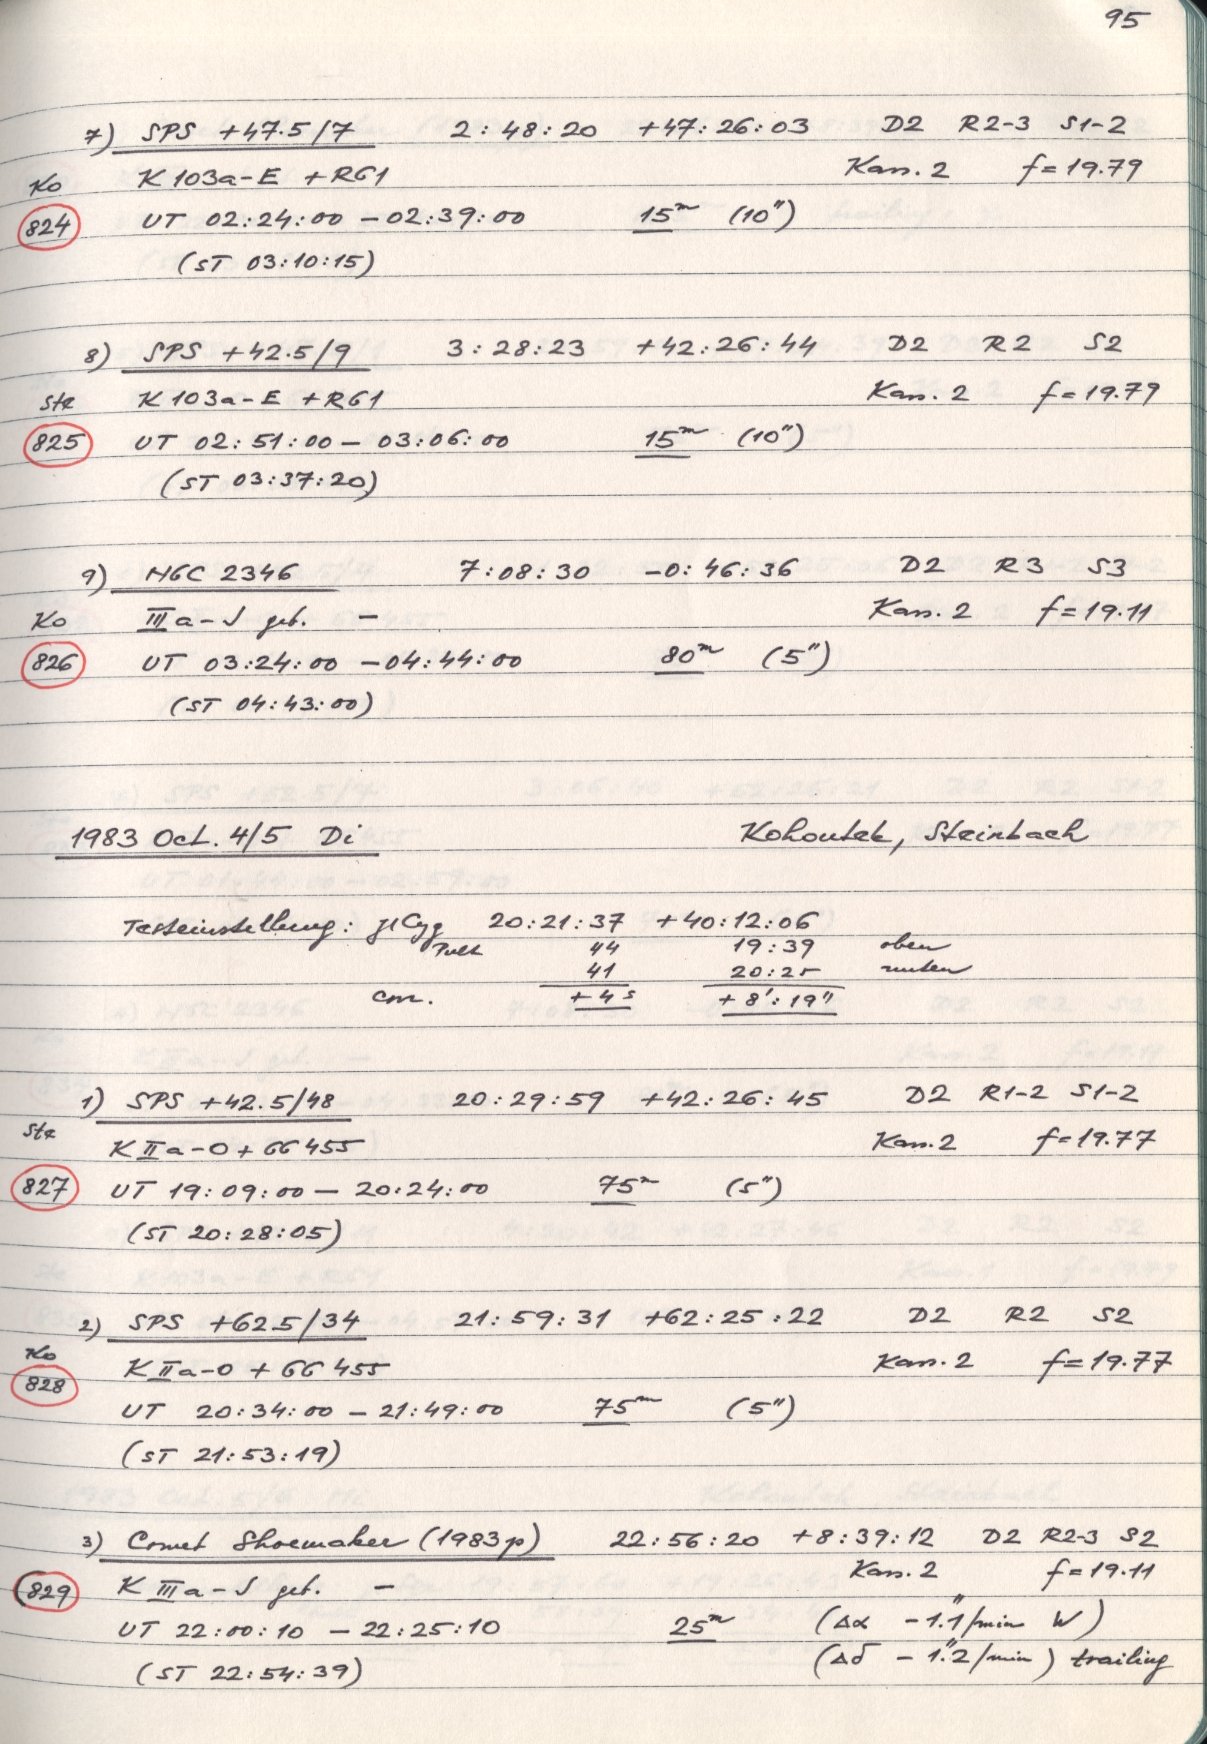 95
7) SPS +47.5/7 2:48:20 +47:26:03 D2 R2-3 S1-2
Ko K 103a-E +RG1 Kass. 2 f=19.79
824 UT 02:24:00 - 02:39:00 15m (10")
(ST 03:10:15)
8) SPS +42.5/9 3:28:23 +42:26:44 D2 R2 S2
Ste K 103a-E +RG1 Kass. 2 f=19.79
825 UT 02:51:00 - 03:06:00 15m (10")
(ST 03:37:20)
9) NGC 2346 7:08:30 -0:46:36 D2 R3 S3
Ko IIIa-J geb. - Kass. 2 f=19.11
826 UT 03:24:00 - 04:44:00 80m (5")
(ST 04:43:00)
1983 Oct. 4/5 Di Kohoutek, Steinbach
Testeinstellung: γ Cyg 20:21:37 +40:12:06
Pult 44 19:39 oben
41 20:25 unten
corr. +4s +8':19"
1) SPS +42.5/48 20:29:59 +42:26:45 D2 R1-2 S1-2
Ste K IIa-O + GG 455 Kass. 2 f=19.77
827 UT 19:09:00 - 20:24:00 75m (5")
(ST 20:28:05)
2) SPS +62.5/34 21:59:31 +62:25:22 D2 R2 S2
Ko K IIa-O + GG 455 Kass. 2 f=19.77
828 UT 20:34:00 - 21:49:00 75m (5")
(ST 21:53:19)
3) Comet Shoemaker (1983p) 22:56:20 +8:39:12 D2 R2-3 S2
829 K IIIa-J geb. - Kass. 2 f=19.11
UT 22:00:10 - 22:25:10 25m (Δα -1."1/min W)
(ST 22:54:39) (Δδ -1."2/min) trailing